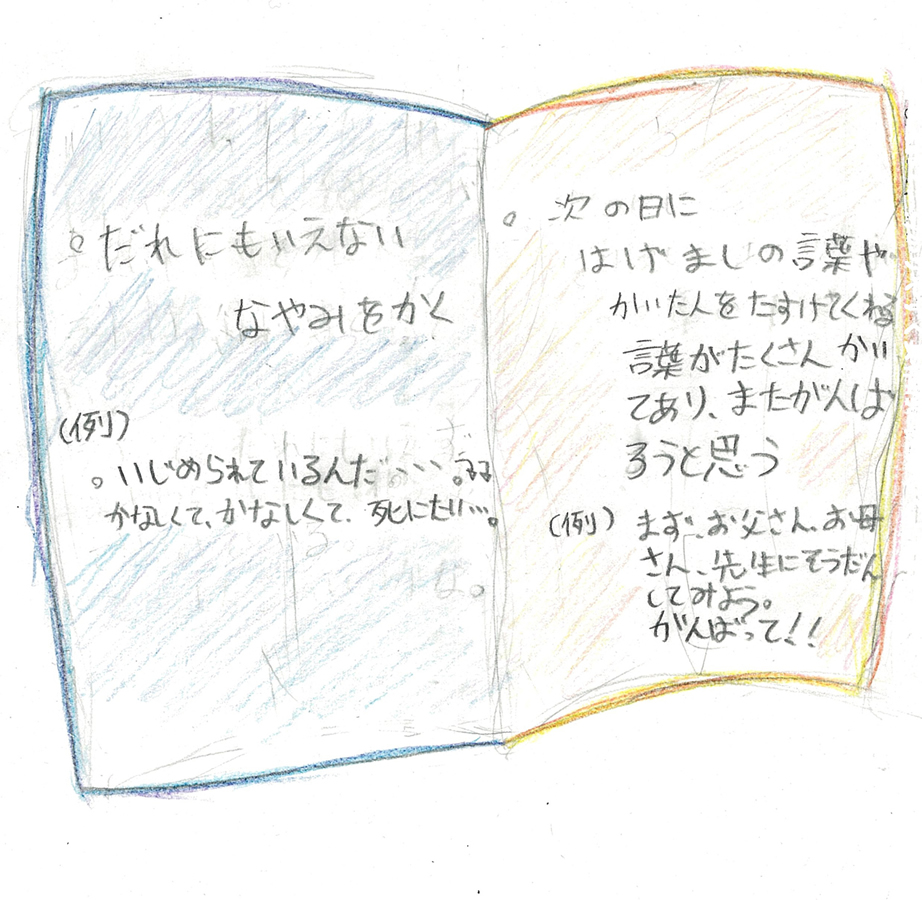 。だれにもいえない
なやみをかく
(例)
。いじめられているんだ、、、、。
かなしくて、かなしくて、死にたい…。
。次の日に
はげましの言葉や
かいた人をたすけてくれる
言葉がたくさんかい
てあり、またがんば
ろうと思う
(例)まず、お父さん、お母
さん、先生にそうだん
してみよう。
がんばって!!